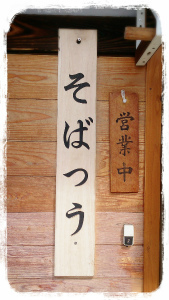 そばつう
営業中